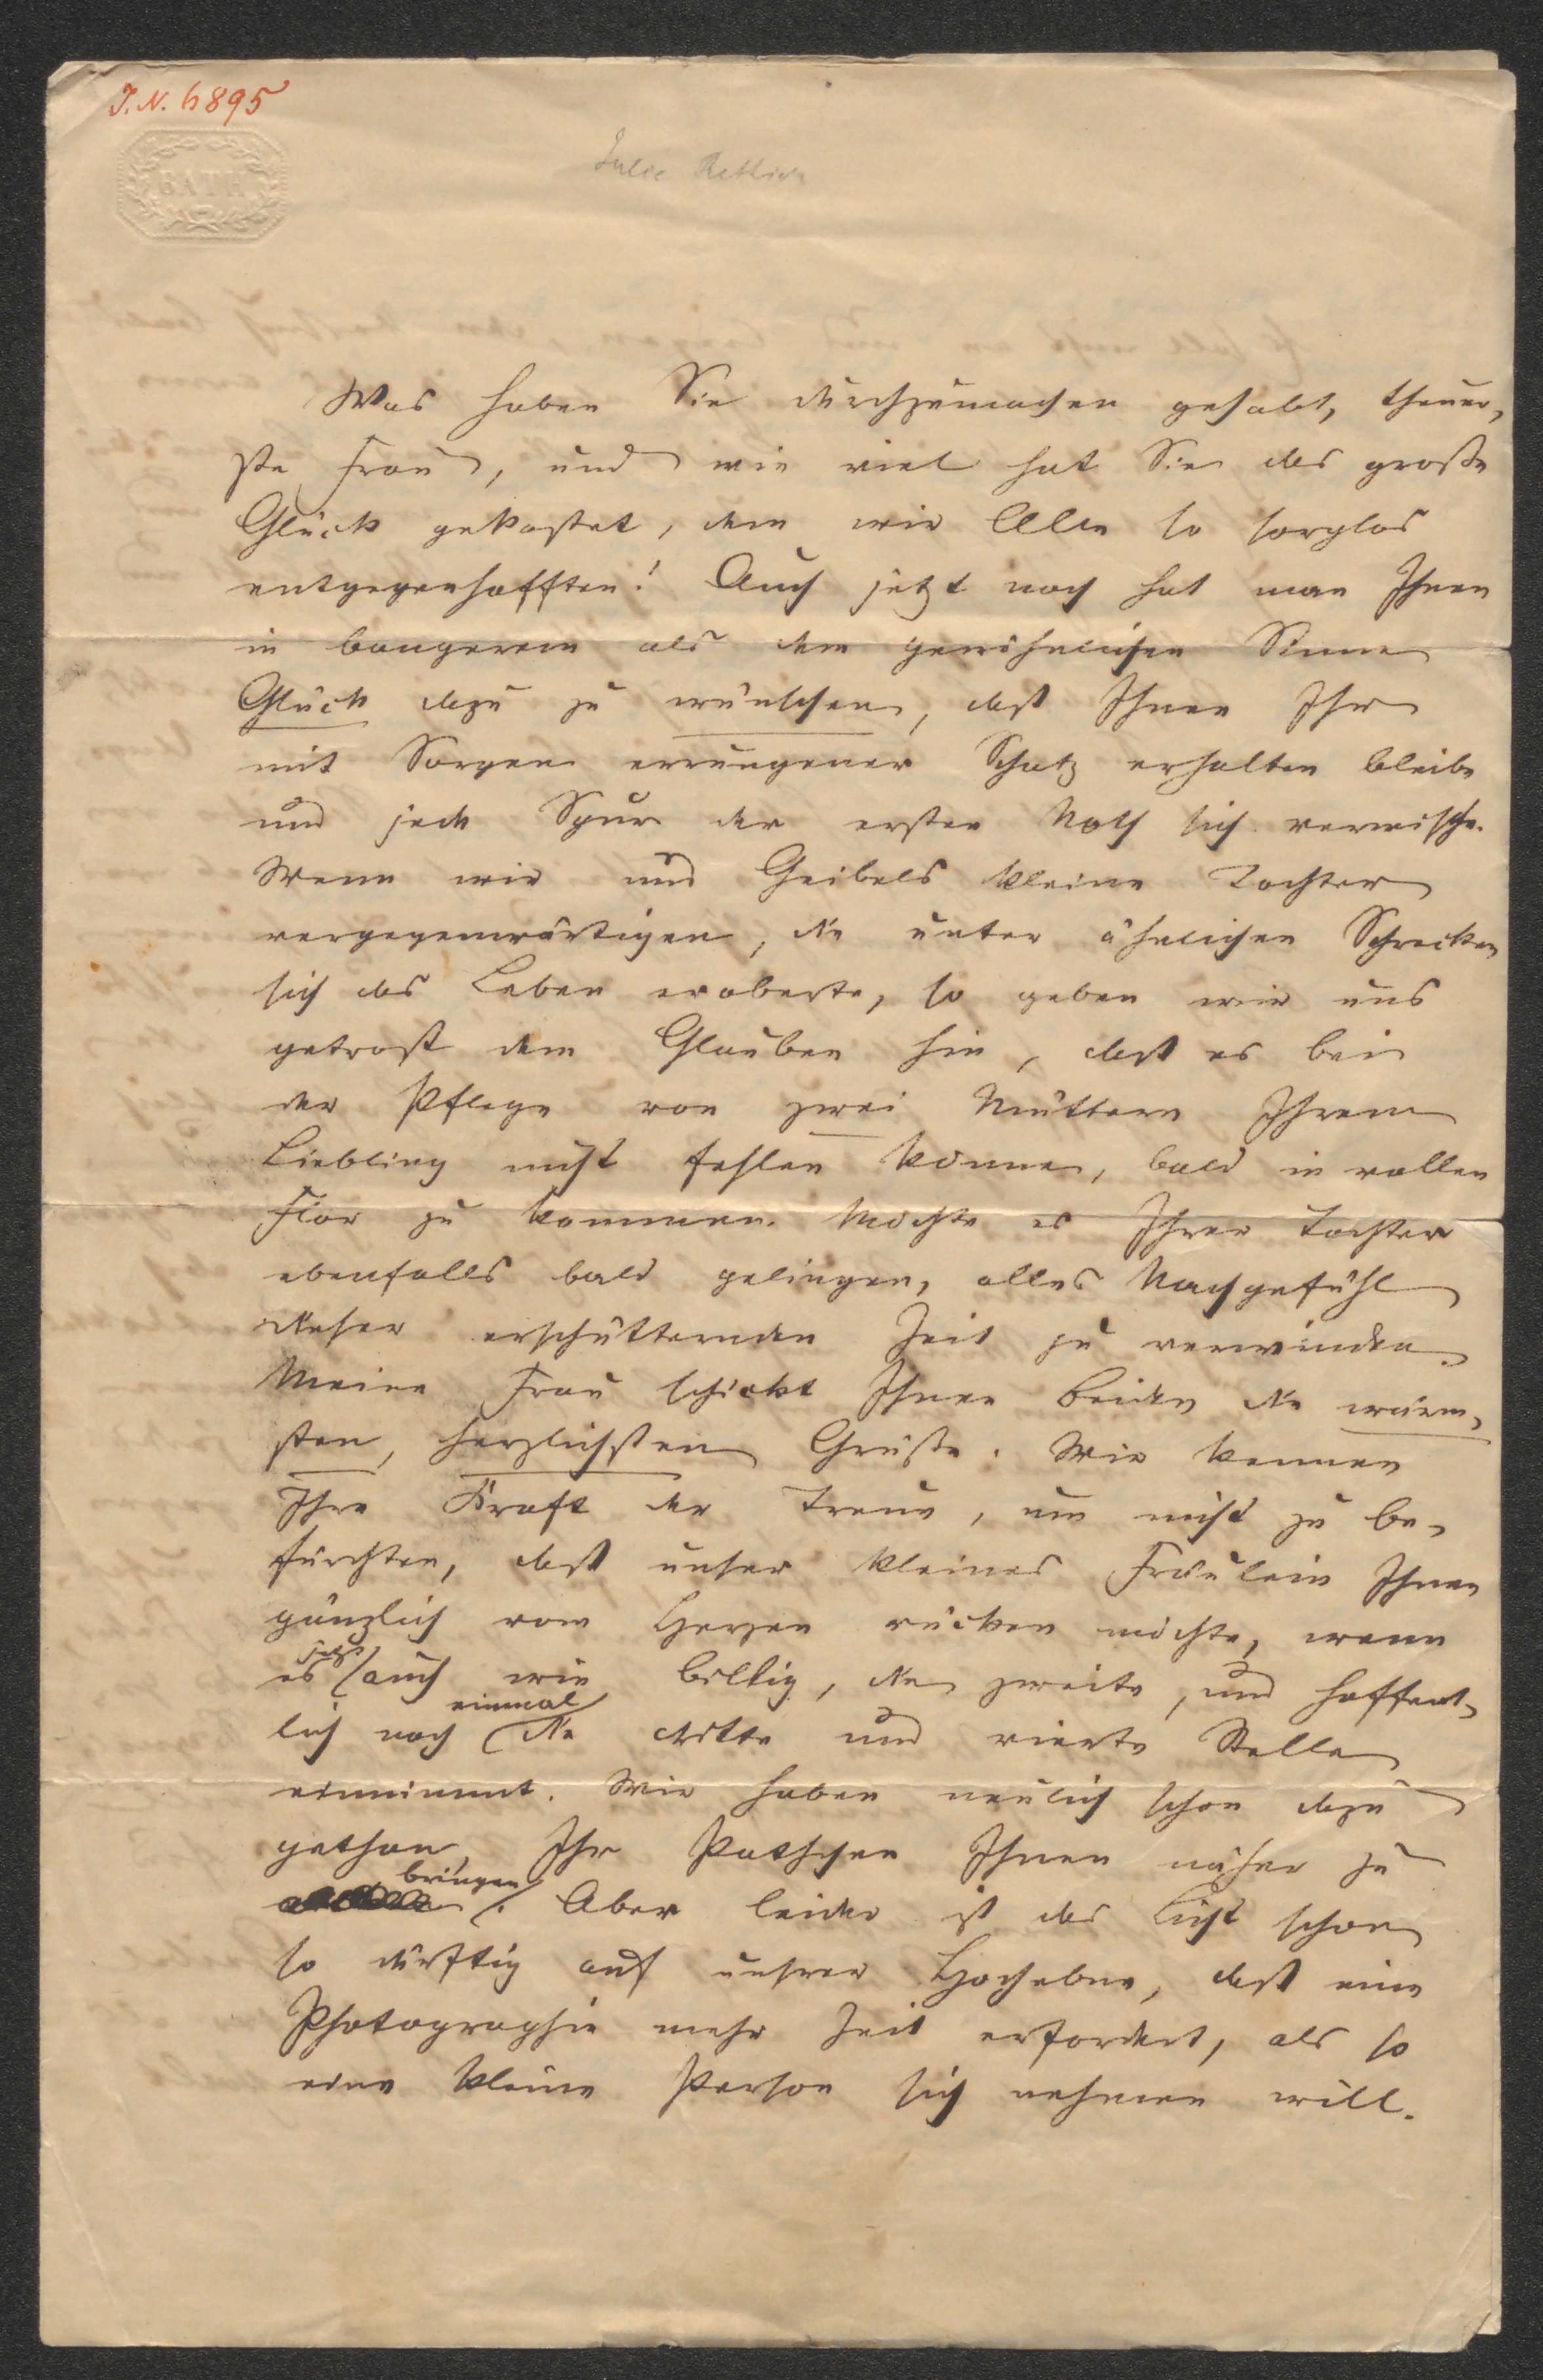 J. N. 6895
BATH
Julie Rettich
Was haben Sie durchzumachen gehabt, theuer,
ste Frau, und wie viel hat Sie das große
Glück gekostet, dem wir Alle so sorglos
entgegenhofften! Auch jetzt noch hat man Ihnen
in bangerem als dem gewöhnlichen Sinne
Glück dazu zu wünschen, daß Ihnen Ihr
mit Sorgen errungener Schatz erhalten bleibe
und jede Spur der ersten Noth sich verwische.
Wenn wir uns Geibels kleine Tochter
vergegenwärtigen, die unter ähnlichen Schrecken
sich das Leben eroberte, so geben wir uns
getrost dem Glauben hin, daß es bei
der Pflege von zwei Müttern Ihrem
Liebling nicht fehlen könne, bald in vollen
Flor zu kommen. Möchte es Ihrer Tochter
ebenfalls bald gelingen, alles Nachgefühl
dieser erschütternden Zeit zu verwinden.
Meine Frau schickt Ihnen Beiden die wärm,
sten, herzlichsten Grüße. Wir kennen
Ihre Kraft der Treue, um nicht zu be-
fürchten, daß unser kleines Fräulein Ihnen
gänzlich vom Herzen rücken möchte, wenn
es jetzt auch wie billig, die zweite, und hoffent-
lich noch einmal die dritte und vierte Stelle
einnimmt. Wir haben neulich schon dazu
gethan, Ihr Pathchen Ihnen näher zu
bringen. Aber leider ist das Licht schon
so dürftig auf unsrer Hochebne, daß eine
Photographie mehr Zeit erfordert, als so
eine kleine Person sich nehmen will.